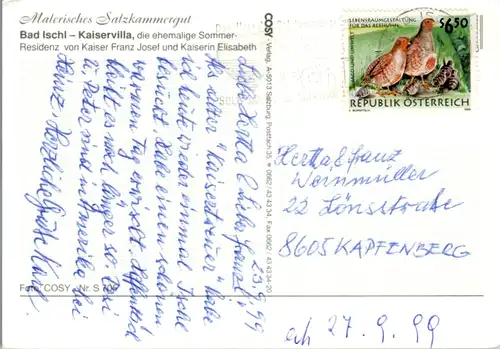 Malerisches Salzkammergut
Bad Ischl – Kaiservilla, die ehemalige Sommer-
Residenz von Kaiser Franz Josef und Kaiserin Elisabeth
23.9.99
Liebe Hertha & Lieber Franzl,
Als alter "Kaisertreuer" habe
ich heute wieder einmal Ischl
besucht. Habe einen schönen
warmen Tag erwischt. Hoffentlich
bleibt es noch länger so.
& Peter sind in Amerika bei
Heinz. Herzliche Grüße Karl
Foto: COSY · Nr. S 709
COSY · Verlag, A-5013 Salzburg, Postfach 35 ☎ 0662/43 43 34, Fax 0662/43 43 34-20
LEBENSRAUMGESTALTUNG
FÜR DAS REBHUHN
JAGD UND UMWELT
S6,50
REPUBLIK ÖSTERREICH
Hertha & Franz
Wernmüller
22 Lönsstraße
8605 KAPFENBERG
erh 27.9.99